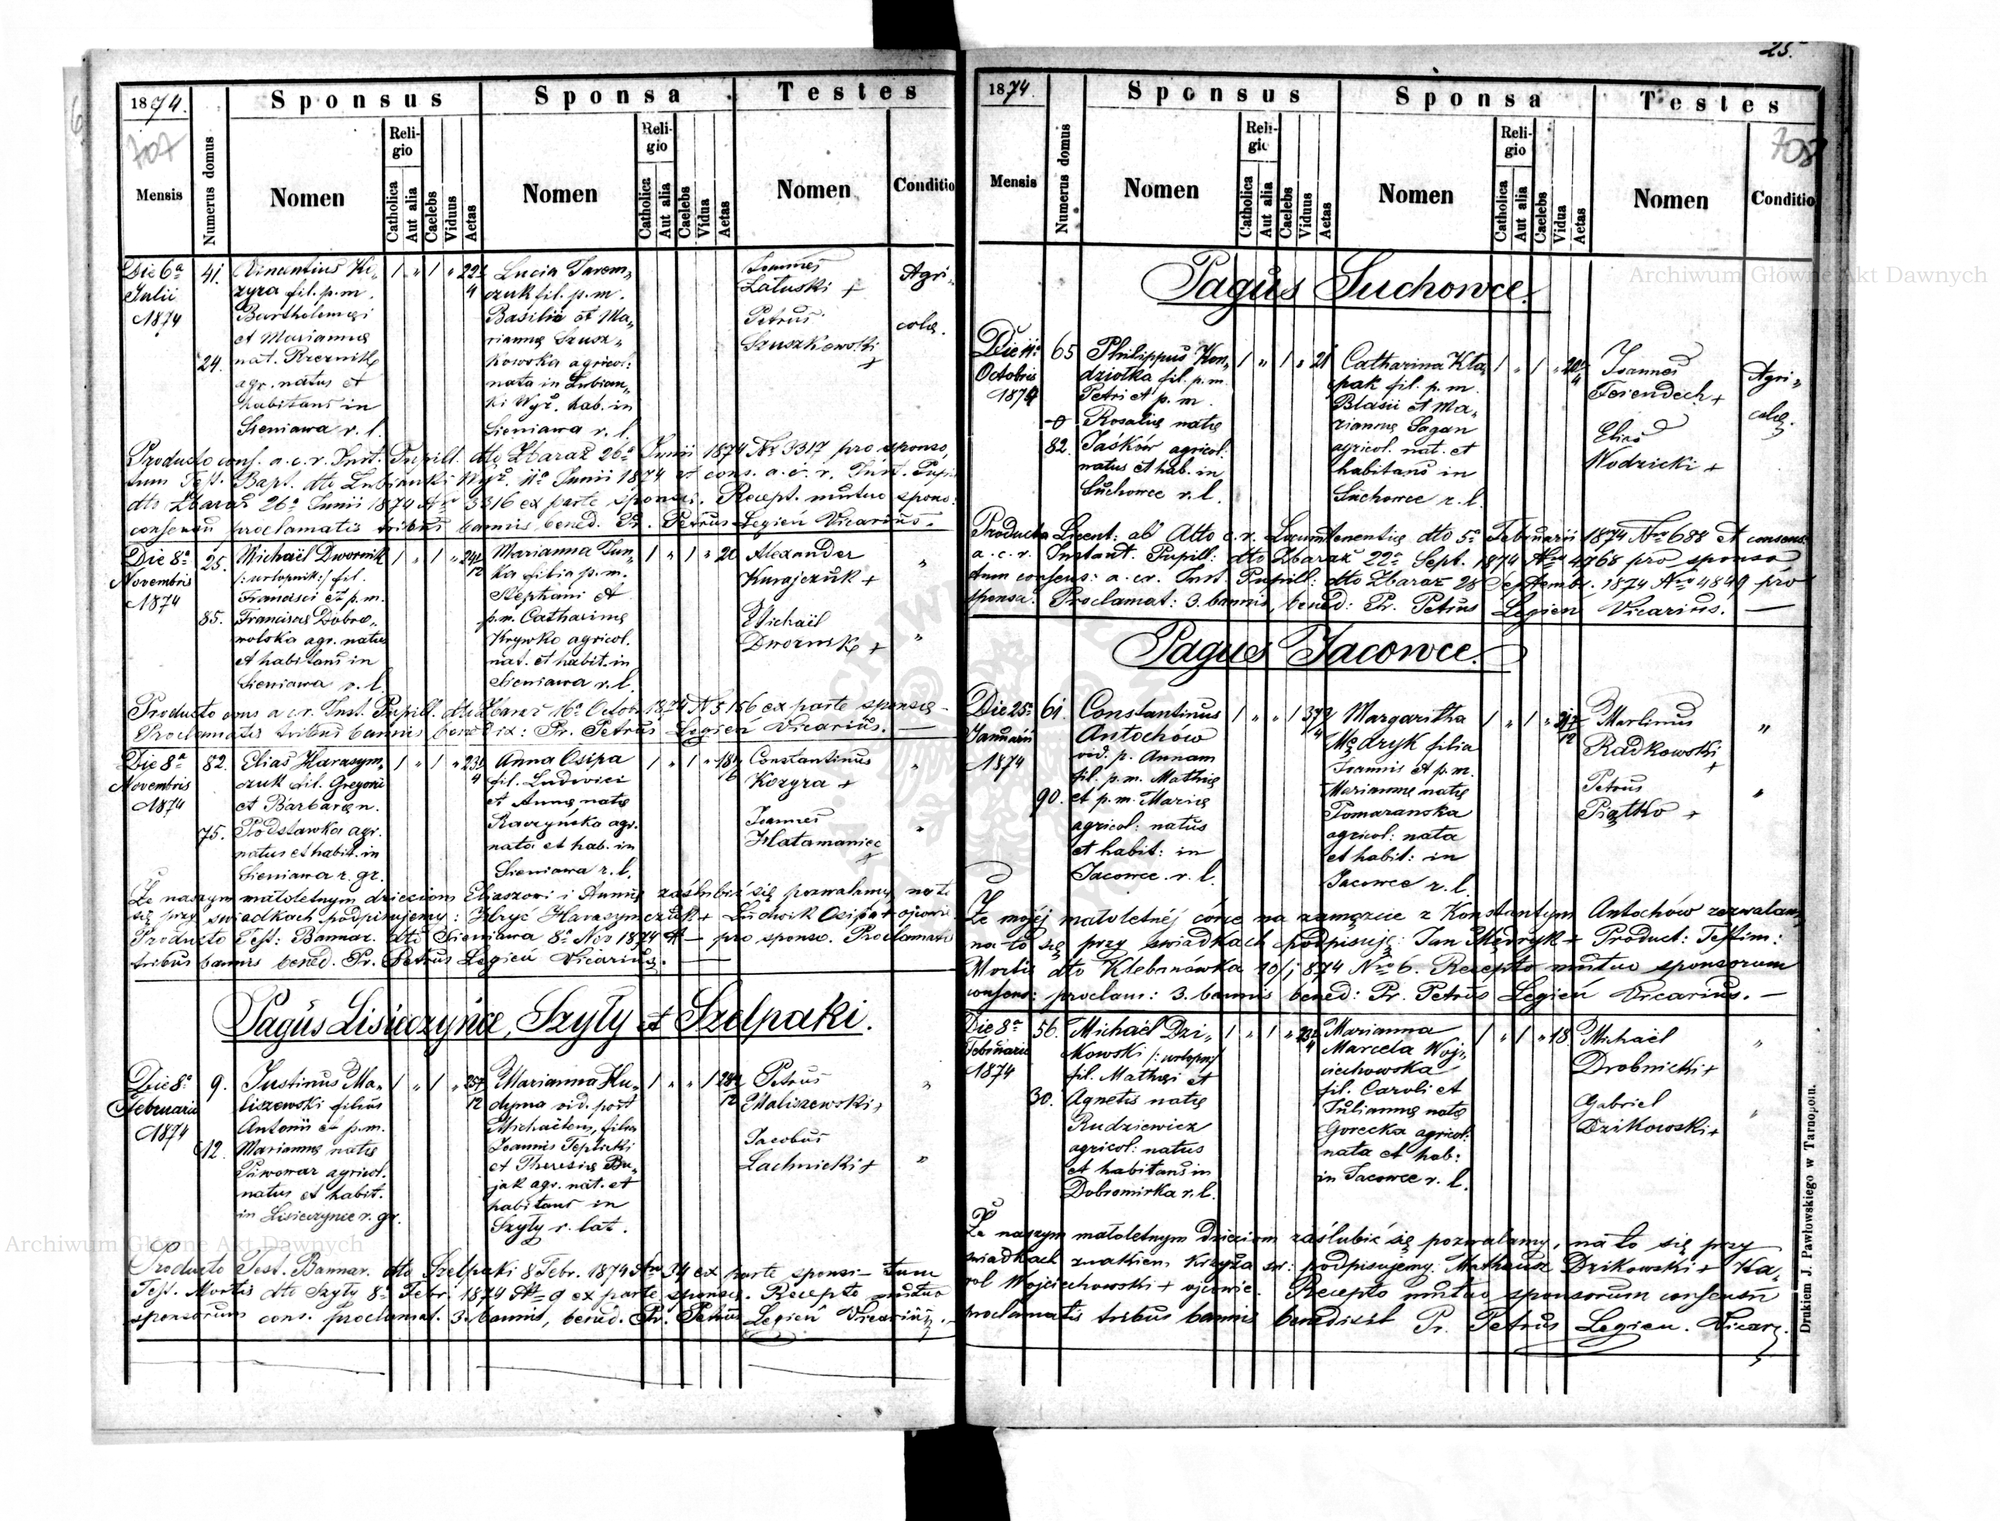 1874.
Sponsus
Sponsa
Testes
707
Mensis
Numerus domus
Nomen
Religio
Catholica
Aut alia
Caelebs
Viduus
Aetas
Nomen
Religio
Catholica
Aut alia
Caelebs
Vidua
Aetas
Nomen
Conditio
Die 6a
Julii
1874
41.
24.
Vincentius Ko-
zyra fil. p.m.
Bartholomęi
et Marianna
nat.
agr. natus et
habitans in
Sieniawa r. l.
Lucia Jarem-
czuk fil. p.m.
Basilii et Ma-
riannę Szusz-
kowska agricol.
nata in Lubian-
ki Wyż. hab. in
Sieniawa r. l.
Joannes
Załuski +
Petrus
Szuszkowski
+
Agri-
colę.
Producto cons. a. c. r. Inst. Pupill. dto Zbaraż 26a Junii 1874 No 3317 pro sponso,
tum Test. Bapt. dto Lubianki Wyż. 11a Junii 1874 et cons. a. c. r. Inst. Pupill.
dto Zbaraż 26a Junii 1874 Nr 3316 ex parte sponsę. Recept. mutuo spons:
consensu proclamatis tribus bannis bened. Pr. Petrus Legień Vicarius.
Die 8a
Novembris
1874
25.
85.
Michaël Dwornik
/:urlopnik:/ fil.
Francisci et p.m.
Franciscę Dobro-
wolska agr. natus
et habitans in
Sieniawa r. l.
Marianna Jun-
ka filia p.m.
Stephani et
p.m. Catharinę
Krywko agricol.
nat. et habit. in
Sieniawa r. l.
Alexander
Kurajczuk +
Michaël
Dwornik +
Producto cons a. c. r. Inst. Pupill. dto Zbaraż 16a Octobr 1874 N 5156 ex parte sponsę -
Proclamatis tribus bannis benedix: Pr. Petrus Legień Vicarius.
Die 8a
Novembris
1874
82.
75.
Elias Harasym-
czuk fil. Gregorii
et Barbarę n.
Podstawka agr.
natus et habit. in
Sieniawa r. gr.
Anna Osipa
fil. Ludovici
et Annę natę
Raczyńska agr.
nata et hab. in
Sieniawa r. l.
Constantinus
Kozyra +
Joannes
Hatamaniec
+
Że naszym małoletnym dzieciom Eliaszowi i Annię zaślubić się pozwalamy, na to
się przy świadkach podpisujemy: Hryć Harasymczuk + Ludwik Osipa + ojcowie
Producto Test: Bannar. dto Sieniawa 8a Nov 1874 pro sponso. Proclamatis
tribus bannis bened. Pr. Petrus Legień Vicarius.
Pagus Lisieczyńce, Szyły et Szelpaki.
Die 8a
Februarii
1874
9.
12.
Justinus Ma-
liszewski filius
Antonii et p.m.
Mariannę natę
Piwowar agricol.
natus et habit.
in Lisieczyńce r. gr.
Marianna Hu-
dyma vid. post
Michaëlem, filia
Joannis Teplicki
et Theresię Bu-
jak agr. nat. et
habitans in
Szyły r. lat.
Petrus
Maliszewski +
Jacobus
Lachnicki +
Producto Test. Bannar. dto Szelpaki 8 Febr. 1874 Nro 34 ex parte sponsi - tum
Test. Mortis dto Szyły 8a Febr. 1874 No 9 ex parte sponsę. Recepto mutuo
sponsorum cons. proclamat. 3. bannis, bened. Pr. Petrus Legień Vicarius.
25.
1874.
Sponsus
Sponsa
Testes
708
Mensis
Numerus domus
Nomen
Religio
Catholica
Aut alia
Caelebs
Viduus
Aetas
Nomen
Religio
Catholica
Aut alia
Caelebs
Vidua
Aetas
Nomen
Conditio
Pagus Suchowce.
Die 11a
Octobris
1874
65
82.
Philippus Kon-
dziołka fil. p.m.
Petri et p.m.
Rosalię natę
Jaśków agricol.
natus et hab. in
Suchowce r. l.
Catharina Kła-
pak fil. p.m.
Blasii et Ma-
riannę Sagan
agricol. nat. et
habitans in
Suchowce r. l.
Joannes
Feiendech +
Elias
Wodzicki +
Agri-
colę.
Producta Licent: ab Alto c. r. Locumtenentia dto 5a Februarii 1874 Nro 688 et consens:
a. c. r. Instant. Pupill: dto Zbaraż 22a Sept. 1874 Nro 4768 pro sponso
tum consens: a. c. r. Inst. Pupill: dto Zbaraż 28 Septembr. 1874 Nro 4849 pro
sponsa. Proclamat: 3. bannis, bened: Pr. Petrus Legień Vicarius.
Pagus Jacowce.
Die 25a
Januarii
1874
61.
90.
Constantinus
Antochow
vid. p. Annam
fil. p.m. Mathię
et p.m. Marię
agricol: natus
et habit: in
Jacowce r. l.
Margaritha
Mędryk filia
Joannis et p.m.
Mariannę natę
Pomaranska
agricol: nata
et habit: in
Jacowce r. l.
Martinus
Radkowski
+
Petrus
Piątko +
Że mojéj małoletnéj córce na zamęzcie z Konstantym Antochów zezwalam,
na to się przy świadkach podpisuję: Jan Mędryk + Product: Testim:
Mortis dto Klebanówka 20/1 874 Nro 6. Recepto mutuo sponsorum
consens: proclam: 3. bannis bened: Pr. Petrus Legień Vicarius. -
Die 8a
Februarii
1874
56.
30.
Michaël Dzi-
kowski /:urlopn:/
fil. Mathęi et
Agnetis natę
Rudziewicz
agricol: natus
et habitans in
Dobromirka r. l.
Marianna
Marcela Woj-
ciechowska
fil. Caroli et
Juliannę natę
Gorecka agricol:
nata et hab:
in Jacowce r. l.
18.
Michaël
Drobnicki +
Gabriel
Dzikowski +
Że naszym małoletnym dzieciom zaślubić się pozwalamy, na to się przy
świadkach znakiem krzyża św: podpisujemy. Matheusz Dzikowski + Ka-
rol Wojciechowski + ojcowie. Recepto mutuo sponsorum consensu
proclamatis tribus bannis benedixit Pr. Petrus Legień. Vicarz.
Drukiem J. Pawłowskiego w Tarnopolu.
Archiwum Główne Akt Dawnych
Archiwum Główne Akt Dawnych